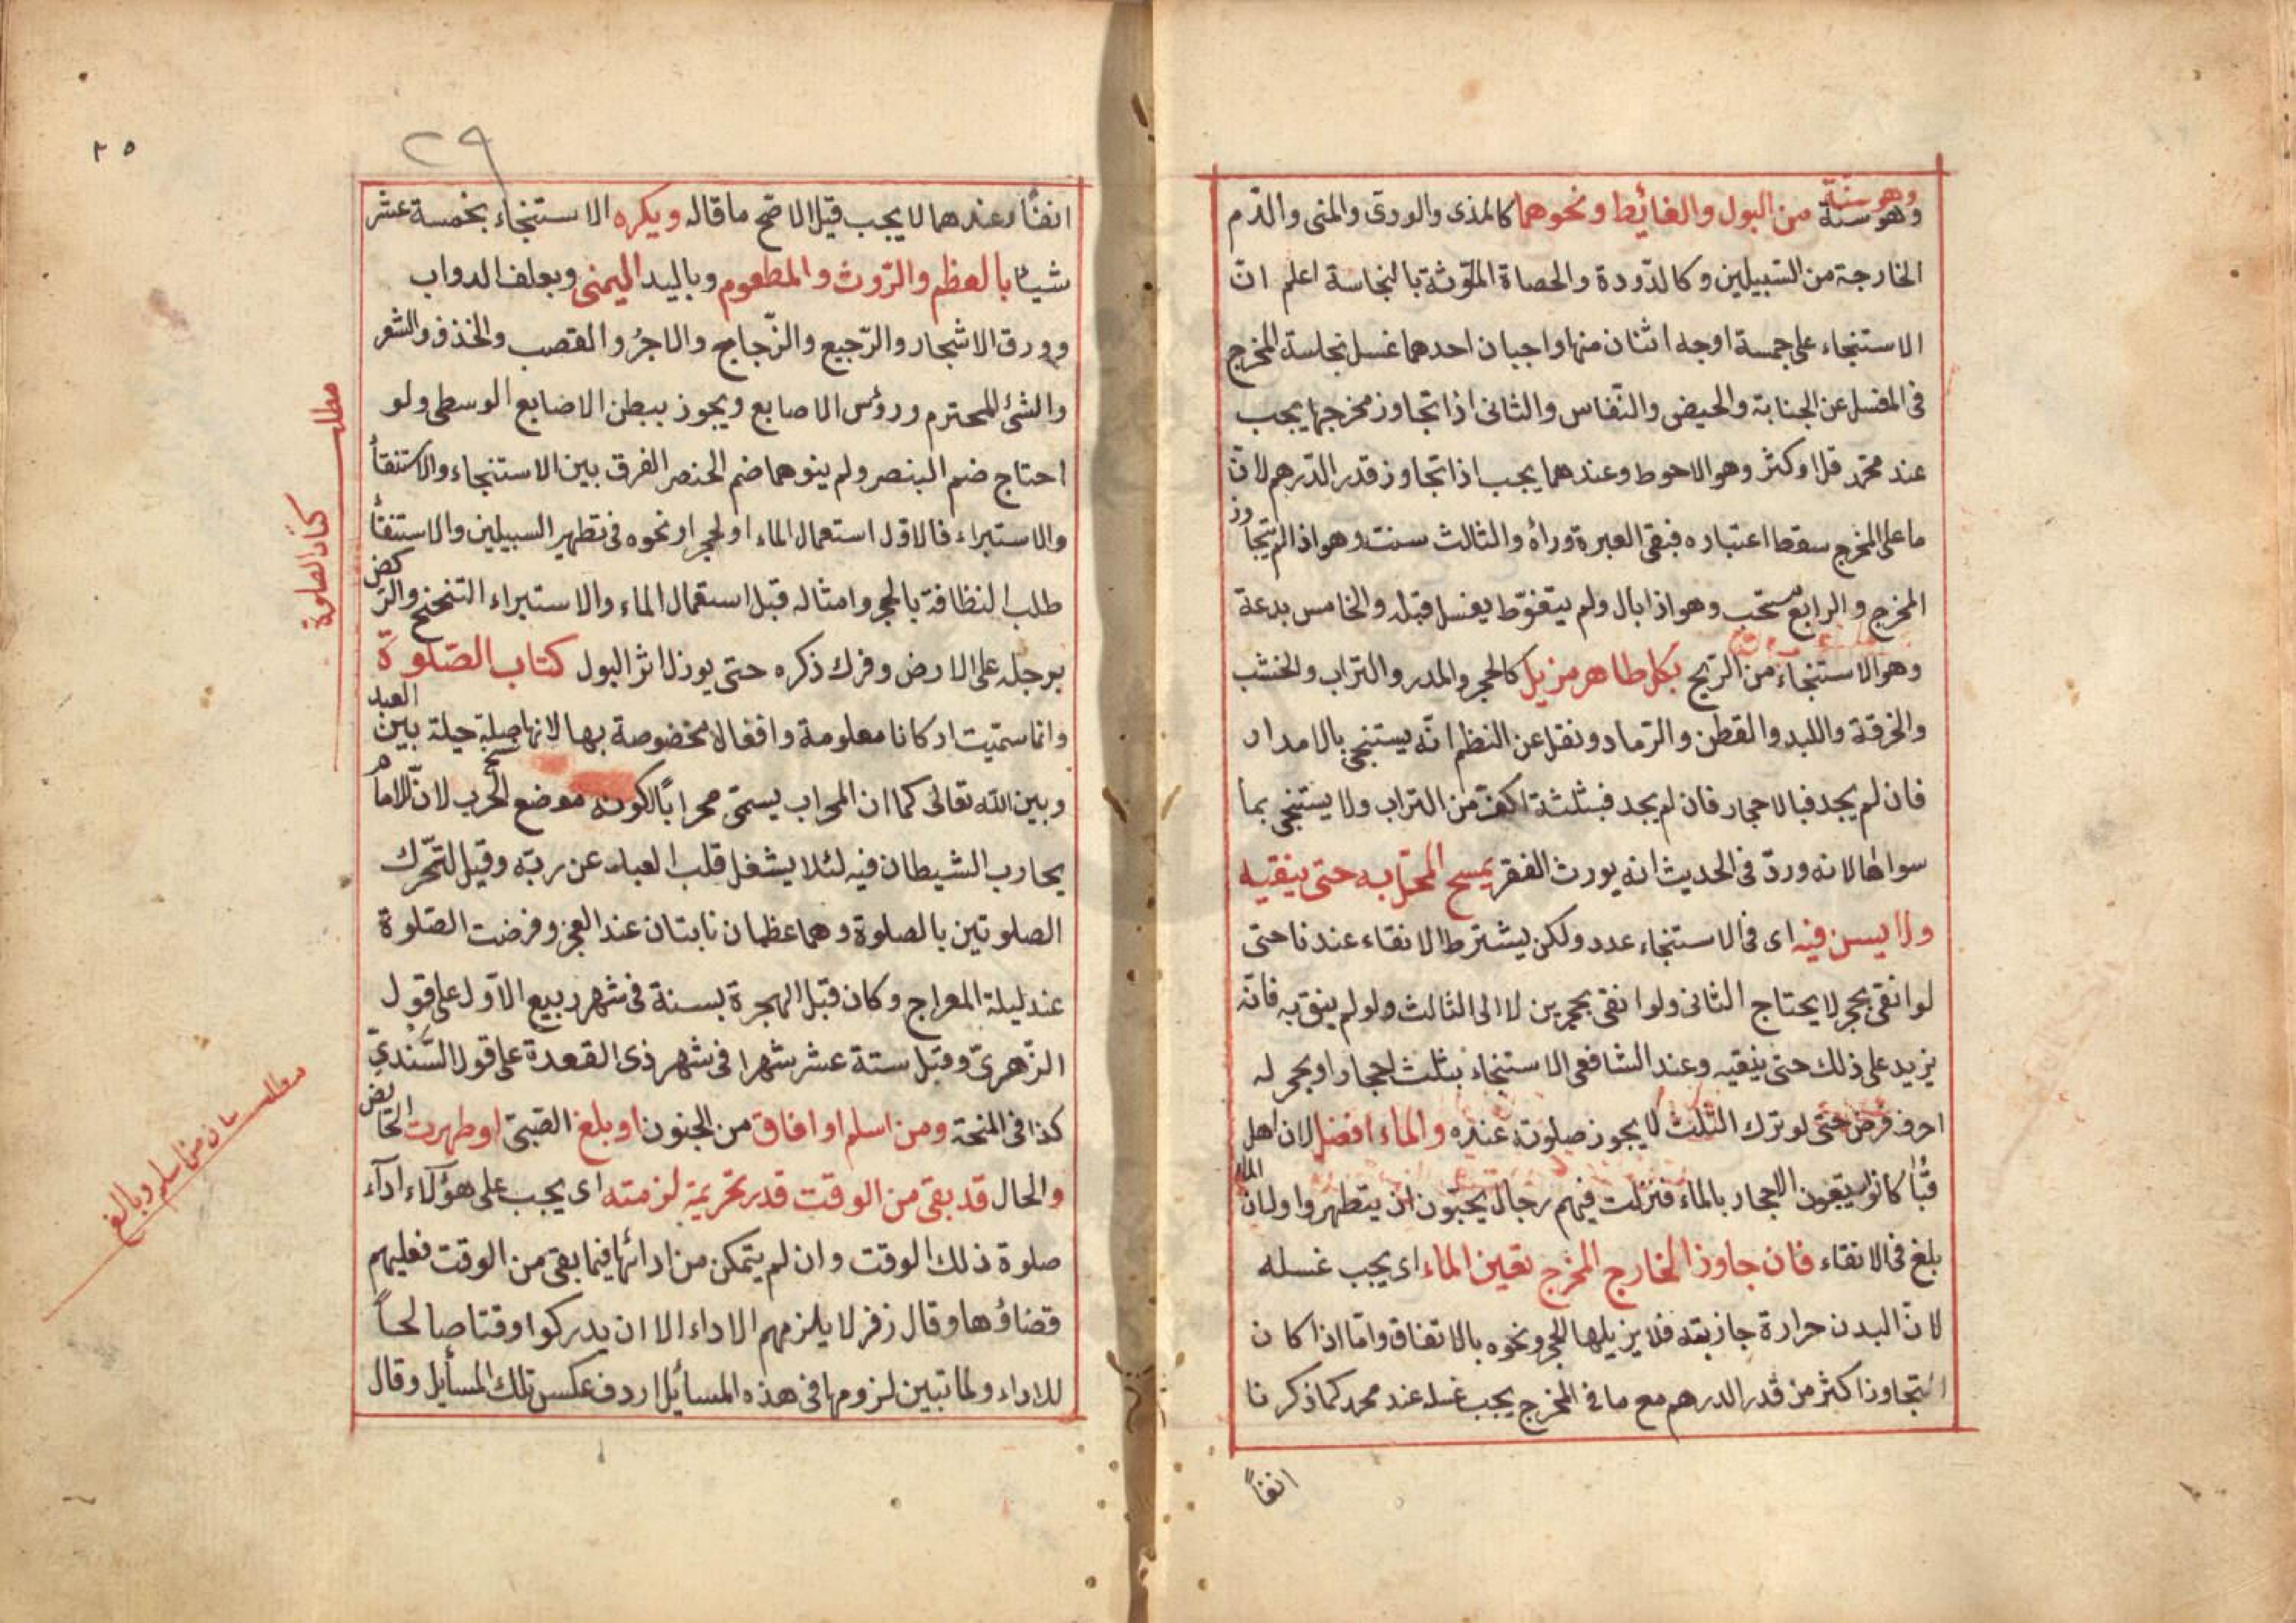 وهو سنة من البول والغائط ونحوهما كالمذى والودى والمنى والدّم
الخارجة من السّبيلين وكالدّودة والحصاة الملّوثة بالنجاسة اعلم انّ
الاستنجاء على خمسة اوجه اثنان منها واجبان احدهما غسل نجاسة المخرج
فى المغسل عن الجنابة والحيض والنّفاس والثانى اذا تجاوز مخرجها يجب
عند محمّد قلّ او كثر وهو الاحوط وعندهما يجب اذا تجاوز قدر الدّرهم لانّ
ما على المخرج سقط اعتباره فبقى العبرة ورأه والثالث سنت وهو اذا لم يتجاوز
المخرج والرابع مستحب وهو اذا بال ولم يتغوّط يغسل قبله والخامس بدعة
وهو الاستنجاء من الرّيح بكل طاهر مزيل كالحجر والمدر والتراب والخشب
والخرقة واللبد والقطن والرّماد ونقل عن النظم انّه يستنجى بالامدار
فان لم يجد فبالاحجار فان لم يجد فبثلثة اكفّ من التراب ولا يستنجى بما
سواها لانه وردّ فى الحديث انه يورث الفقر يمسح المحلّ به حتى ينقيه
ولا يسن فيه اى فى الاستنجاء عدد ولكن يشترط الانقاء عندنا حتى
لو انقى بحجر لا يحتاج الثانى ولو انقى بحجرين لا الى الثالث ولو لم ينق به فانّه
يزيد على ذلك حتى ينقيه وعند الشافعى الاستنجاء بثلث احجار او بحجر له
احرف فرض حتى لو ترك الثلث لا يجوز صلوته عنده والماء افضل لان اهل
قبا كانوا يتبعون الاحجار بالماء فنزلت فيهم رجال يحبّون ان يتطهروا ولان الماء
بلغ فى الانقاء فان جاوز الخارج المخرج تعين الماء اى يجب غسله
لانّ البدن حرارة جاذبته فلا يزيلها الحجر ونحوه بالاتفاق وامّا اذا كان
التجاوز اكثر من قدر الدرهم مع ما فى المخرج يجب غسله عند محمد كما ذكرنا
انفاً
٢٩
٢٥
انفًا وعندهما لا يجب قيل الاصّح ما قاله ويكره الاستنجاء بخمسة عشر
شيئا بالعظم والرّوث والمطعوم وباليد اليمنى وبعلف الدواب
وورق الاشجار والرّجيع والزّجاج والاجرّ والقصب والخذف والشعر
والشئ المحترم ورؤس الاصابع ويجوز ببطن الاصابع الوسطى ولو
احتاج ضم البنصر ولم ينوهما ضم الخنصر الفرق بين الاستنجاء والاستنقأ
والاستبراء فالاوّل استعمال الماء او الحجر او نحوه فى تطهير السبيلين والاستنقأ
طلب النظافة بالحجر وامثاله قبل استعمال الماء والاستبراء التنحنح والركض
برجله على الارض وفرك ذكره حتى يوذل اثر البول كتاب الصّلوة
وانما سمّيت اركانا معلومة وافعالا مخضوصة بها لانها صلة حيلة بين العبد
وبين الله تعالى كما ان المحراب يسمّى محرابًا لكونه موضع الحرب لانّ الامام
يحارب الشيطان فيه لئلا يشغل قلب العباد عن ربّه وقيل لتحّرك
الصلوتين بالصلوة وهما عظمان نابتان عند العجز وفرضت الصّلوة
عند ليلة المعراج وكان قبل الهجرة بسنة فى شهر ربيع الاوّل على قول
الزّهرىّ وقبل ستة عشر شهرا فى شهر ذى القعدة على قول السّندىّ
كذا فى المنحة ومن اسلم او افاق من الجنون او بلغ الصّبىّ او طهرت الحائض
والحال قد بقى من الوقت قدر تحريمة لزمته اى يجب على هؤلاء ادآء
صلوة ذلك الوقت وان لم يتمكن من ادائها فيما بقى من الوقت فعليهم
قضاؤها وقال زفر لا يلزمهم الاداء الا ان يدركوا وقتا صالحاً
للاداء ولما تبين لزومها فى هذه المسائل اردف عكس تلك المسأيل وقال
مطلب
كتاب الصلوة